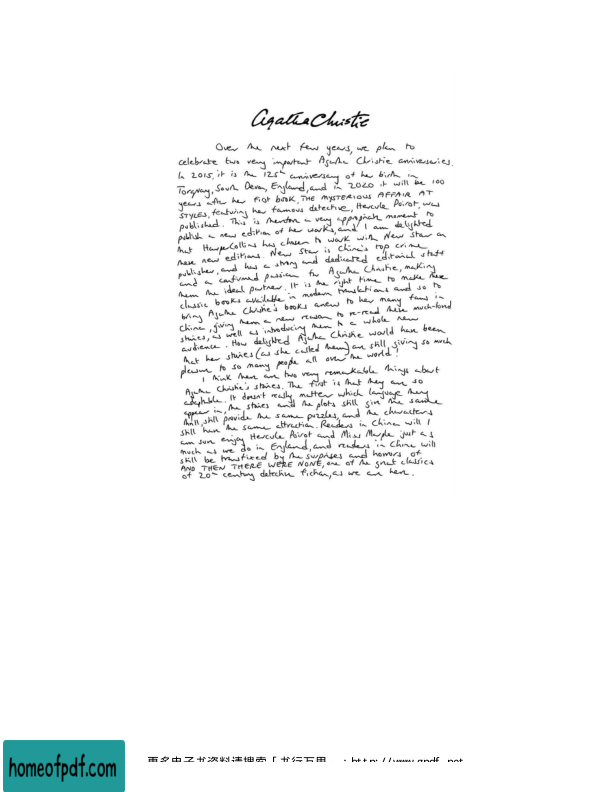 Agatha Christie
Over the next few years, we plan to
celebrate two very important Agatha Christie anniversaries.
In 2015, it is the 125th anniversary of her birth in
Torquay, South Devon, England, and in 2020 it will be 100
years after her first book, THE MYSTERIOUS AFFAIR AT
STYLES, featuring her famous detective, Hercule Poirot, was
published. This is therefore a very appropriate moment to
publish a new edition of her works, and I am delighted
that HarperCollins has chosen to work with New Star on
these new editions. New Star is China's top crime
publisher, and has a strong and dedicated editorial staff
and a confirmed passion for Agatha Christie, making
them the ideal partner. It is the right time to make these
classic books available in modern translations and so to
bring Agatha Christie's books anew to her many fans in
China, giving them a new reason to re-read these much-loved
stories, as well as introducing them to a whole new
audience. How delighted Agatha Christie would have been
that her stories (as she called them) are still giving so much
pleasure to so many people all over the world!
I think there are two very remarkable things about
Agatha Christie's stories. The first is that they are so
adaptable. It doesn't really matter which language they
appear in, the stories and the plots still give the same
thrill, still provide the same puzzles, and the characters
still have the same attraction. Readers in China will I
am sure enjoy Hercule Poirot and Miss Marple just as
much as we do in England, and readers in China will
still be transfixed by the surprises and horrors of
AND THEN THERE WERE NONE, one of the great classics
of 20th century detective fiction, as we are here.
homeofpdf.com
更多电子书资料请搜索「书行万里